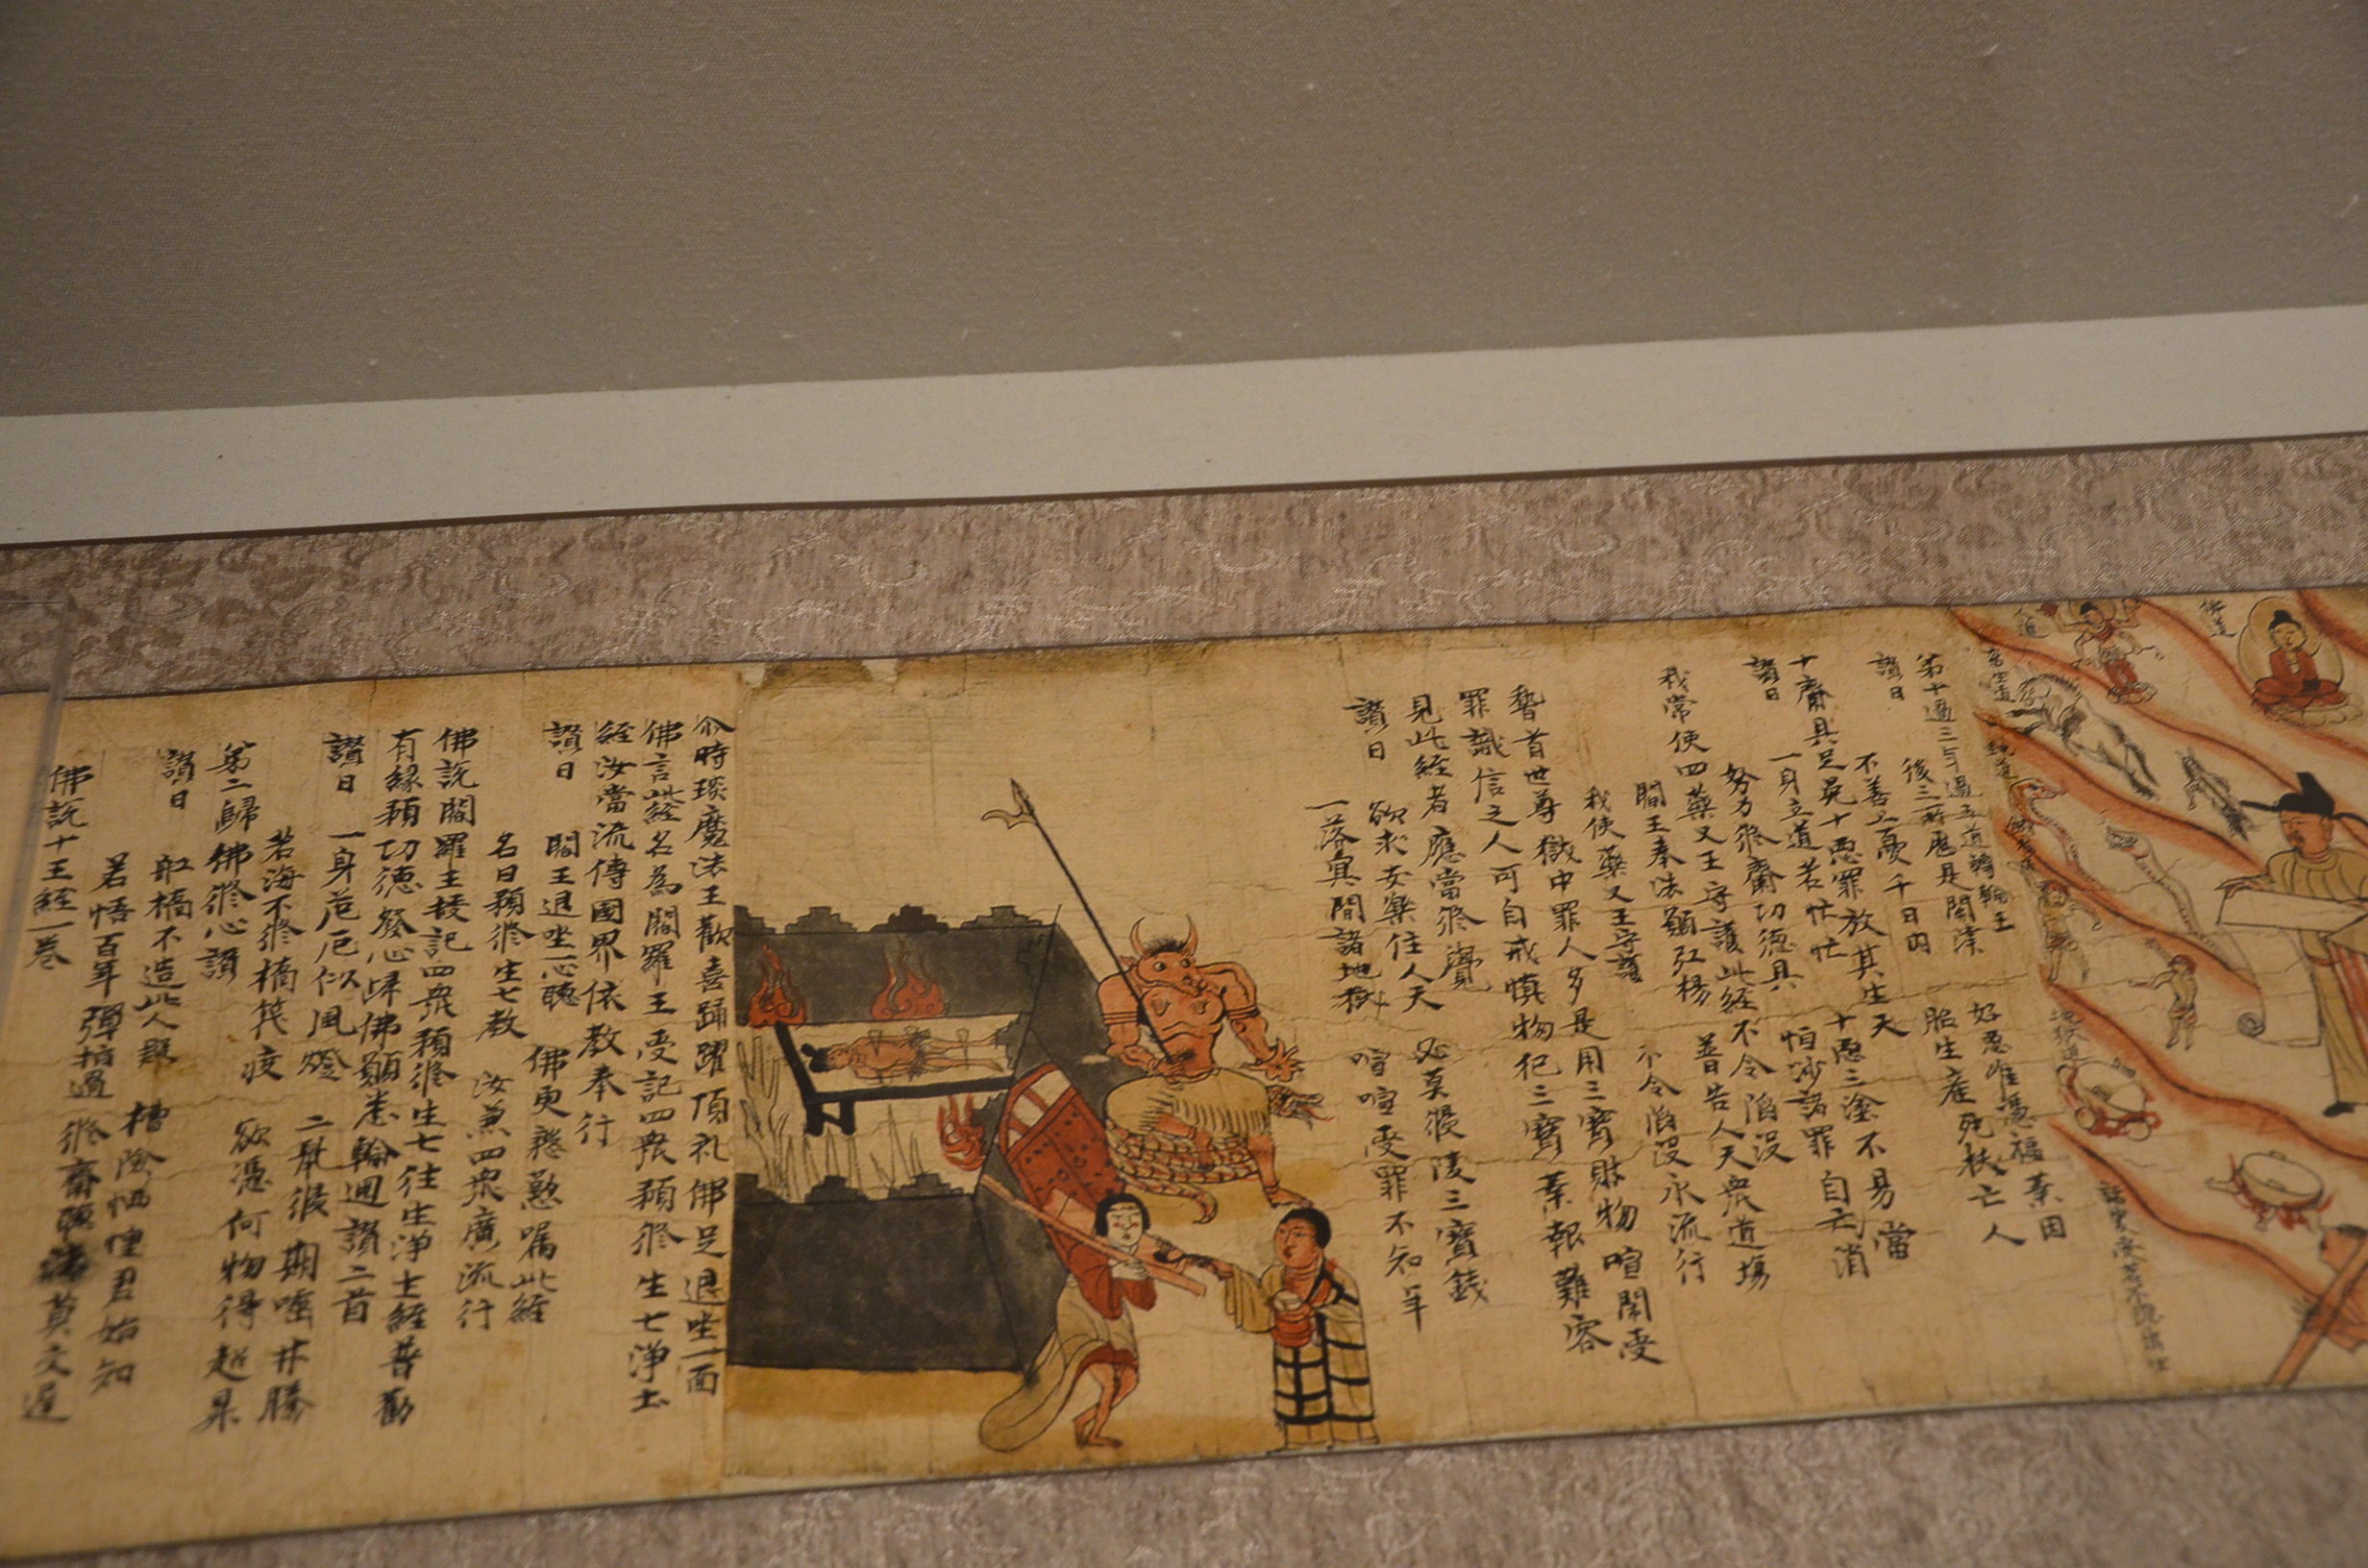 佛道
人道
畜生道
餓鬼道
地獄道
第十過三年過五道轉輪王
讃曰
後三所歷是關津
好惡唯憑福業因
不善上憂千日內
胎生產死拔亡人
十齋具足免十惡罪放其生天
讃曰
一身六道苦忙忙
十惡三塗不易當
努力修齋功德具
恒沙諸罪自消
我常使四藥叉王守護此經不令陷沒
讃曰
閻王奉法願弘揚
普告人天衆道場
我使藥叉王守護
不令陷沒永流行
稽首世尊獄中罪人多是用三寶財物喧鬧受
罪識信之人可自戒慎物犯三寶業報難容
見此經者應當修學
讃曰
欲求安樂住人天
必莫侵陵三寶錢
一落冥間諸地獄
喧喧受罪不知年
尒時琰魔法王歡喜踊躍頂礼佛足退坐一面
佛言此經名為閻羅王受記四衆預修生七淨土
經汝當流傳國界依教奉行
讃曰
閻王退坐一心聽
佛更慇懃囑此經
名曰預修生七教
汝兼四衆廣流行
佛說閻羅王授記四衆預修生七往生淨土經普勸
有緣預功德發心歸佛願悉輪迴讃二首
讃曰
一身危厄似風燈
二鼠侵期嚙井藤
苦海不修橋筏渡
欲憑何物得超昇
第二歸佛修心讃
讃曰
船橋不造此人
君始知
若悟百年彈指過
修齋聽法莫交遲
佛說十王經一卷